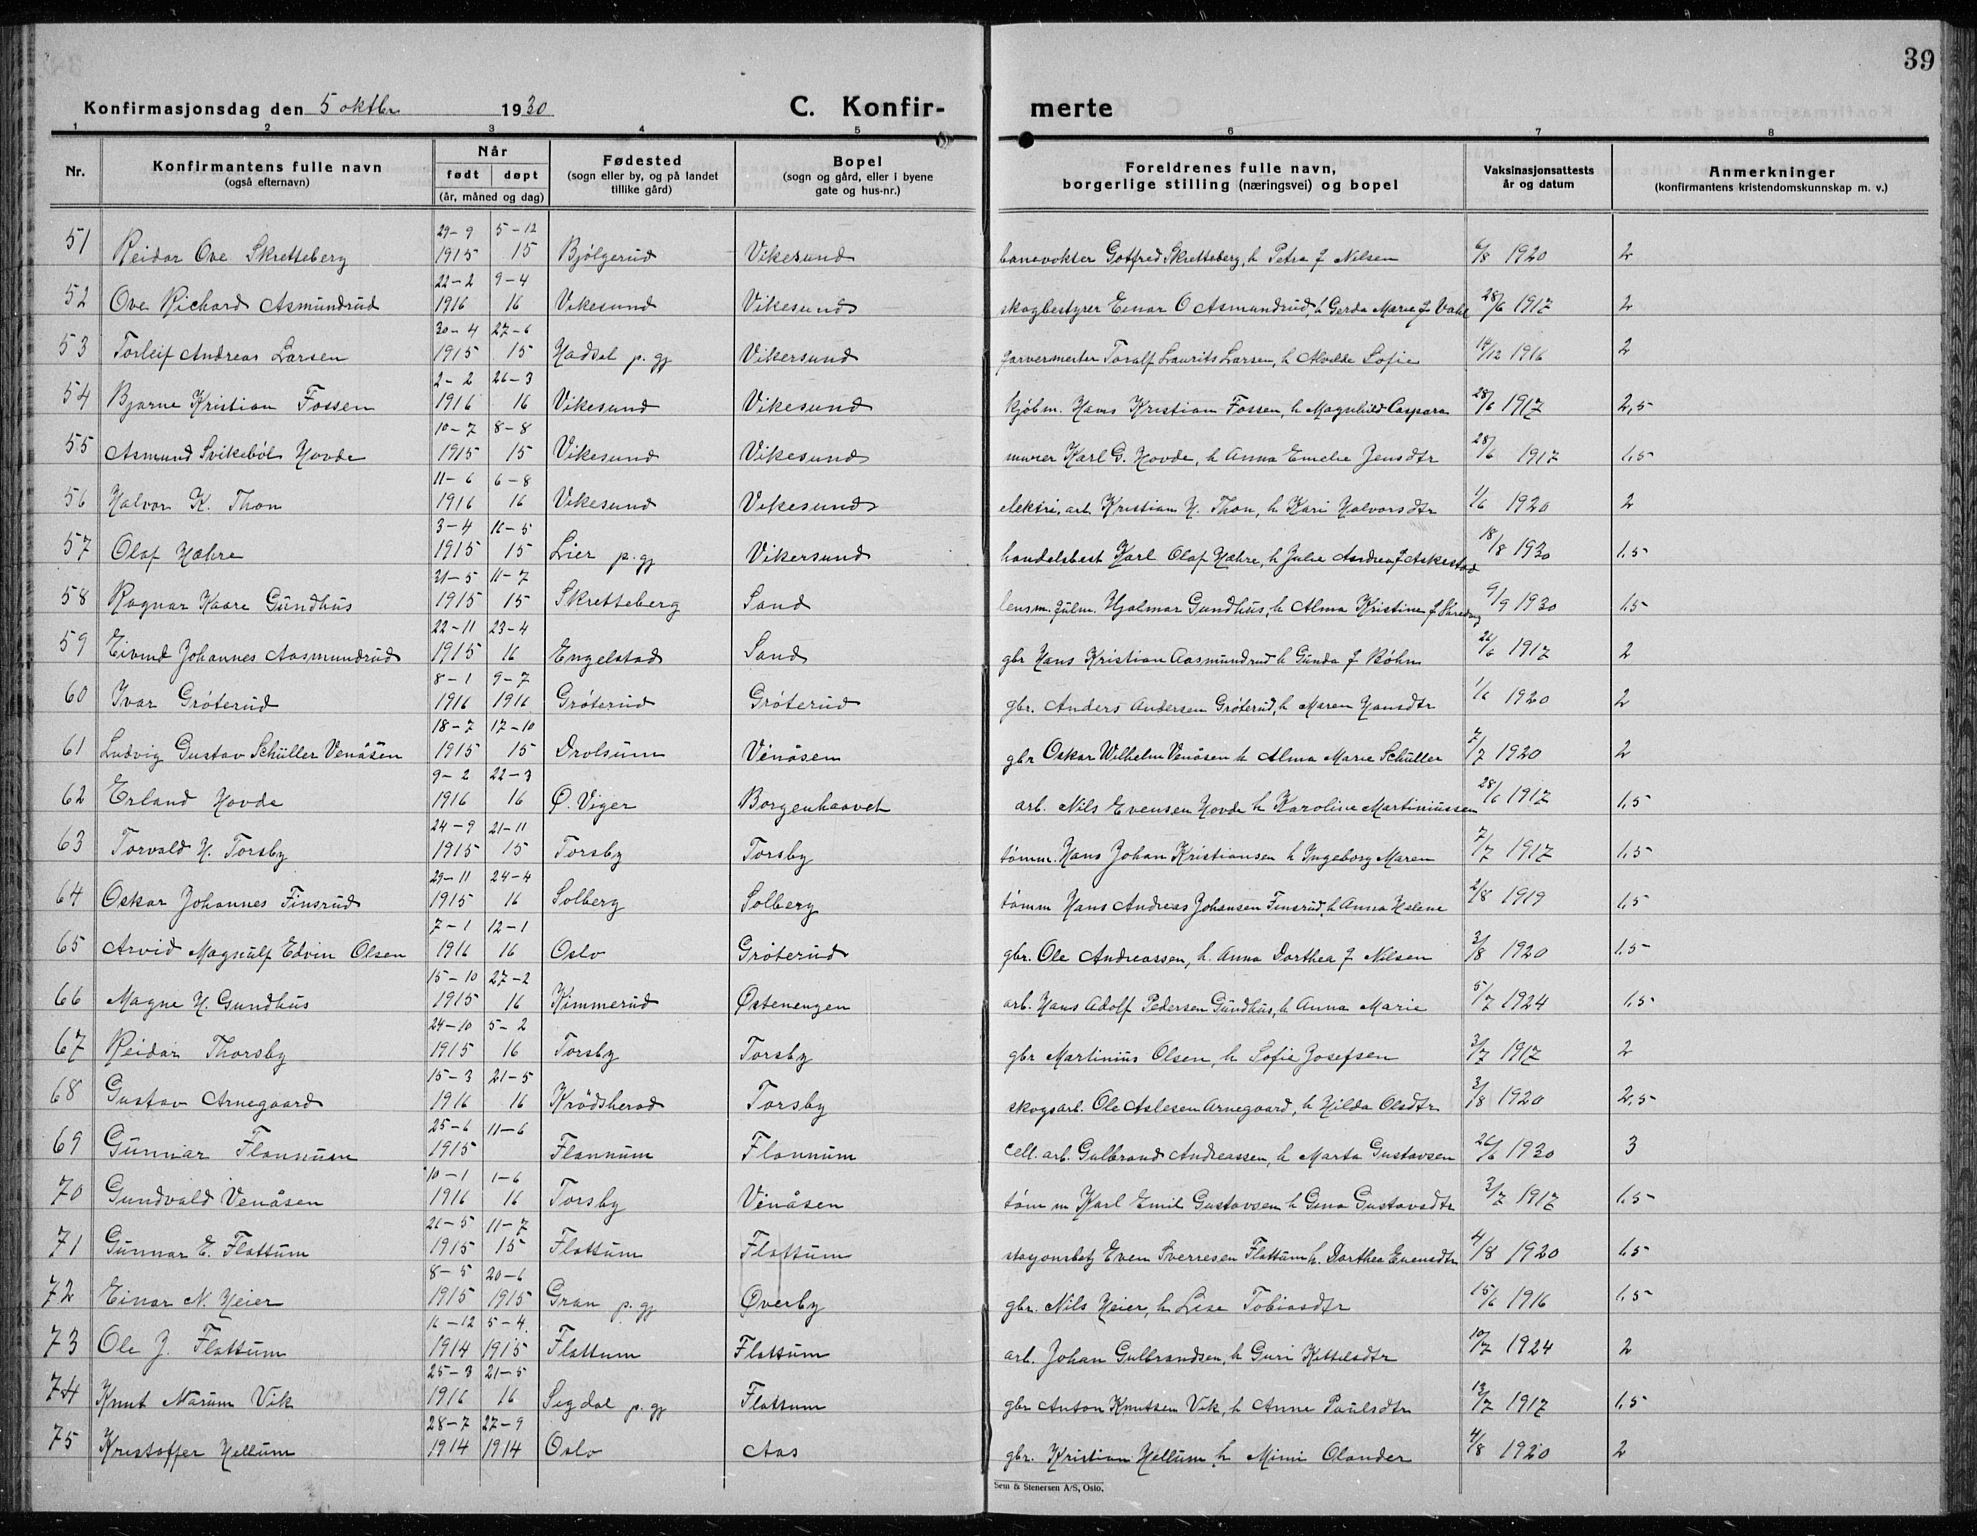 39
Konfirmasjonsdag den 5 oktbr 1930 C. Konfir- merte
1 2 3 4 5 6 7 8
Nr. Konfirmantens fulle navn (også efternavn) Når født døpt (år, måned og dag) Fødested (sogn eller by, og på landet tillike gård) Bopel (sogn og gård, eller i byene gate og hus-nr.) Foreldrenes fulle navn, borgerlige stilling (næringsvei) og bopel Vaksinasjonsattests år og datum Anmerkninger (konfirmantens kristendomskunnskap m. v.)
51 Reidar Ove Skretteberg 29-9 1915 5-12 15 Bjølgerud Vikesund banevokter Gotfred Skretteberg, h Petra f Nilsen 6/8 1920 2
52 Ove Richard Asmundrud 22-2 1916 9-4 16 Vikesund Vikesund skogbestyrer Einar O Asmundrud, h Gerda Marie f Vahl 28/6 1917 2
53 Torleif Andreas Larsen 30-4 1915 27-6 15 Hadsel p. gj Vikersund garvermester Toralf Laurits Larsen, h Alvilde Sofie 14/12 1916 2
54 Bjarne Kristian Fossen 2-2 1916 26-3 16 Vikesund Vikesund kjøbm. Hans Kristian Fossen, h Magnhild Caspara 28/6 1917 2,5
55 Asmund Svikebøl Hovde 10-7 1915 8-8 15 Vikesund Vikesund murer Karl G. Hovde, h Anna Emelie Jensdtr 28/6 1917 1,5
56 Halvor K. Thon 11-6 1916 6-8 16 Vikesund Vikesund elektri. arb. Kristian H. Thon, h Kari Halvorsdtr 1/6 1920 2
57 Olaf Hæhre 3-4 1915 16-5 15 Lier p. gj Vikersund handelsbest Karl Olaf Hæhre, h Julie Andrea f Askestad 18/8 1930 1,5
58 Ragnar Kaare Gundhus 31-5 1915 11-7 15 Skretteberg Sand lensm. fulm. Hjalmar Gundhus, h Alma Kristine f 9/9 1930 1,5
59 Eivind Johannes Aasmundrud 22-11 1915 23-4 16 Engelstad Sand gbr Hans Kristian Aasmundrud h Gunda f Bøhn 26/6 1917 2
60 Ivar Grøterud 8-1 1916 9-7 1916 Grøterud Grøterud gbr. Anders Andersen Grøterud, h Maren Hansdtr 1/6 1920 2
61 Ludvig Gustav Schüller Venåsen 18-7 1915 17-10 15 Drolsum Venåsen gbr Oskar Wilhelm Venåsen h Alma Marie Schüller 7/7 1920 2
62 Erland Hovde 9-2 1916 22-3 16 Ø. Viger Borgenhaavet arb. Nils Evensen Hovde h Karoline Martiniussen 28/6 1917 1,5
63 Torvald H. Torsby 24-9 1915 21-11 15 Torsby Torsby tømm. Hans Johan Kristiansen h Ingeborg Maren 7/7 1917 1,5
64 Oskar Johannes Finsrud 29-11 1915 24-4 16 Solberg Solberg tømm Hans Andreas Johansen Finsrud, h Anna Helene 2/8 1919 1,5
65 Arvid Magnulf Edvin Olsen 7-1 1916 12-1 16 Oslo Grøterud gbr. Ole Andreassen, h. Anna Dorthea f Nilsen 3/8 1920 1,5
66 Magne H. Gundhus 15-10 1915 27-2 16 Kimmerud Østenengen arb. Hans Adolf Pedersen Gundhus, h Anna Marie 5/7 1924 1,5
67 Reidar Thorsby 24-10 1915 5-2 16 Torsby Torsby gbr Martinius Olsen, h Sofie Josefsen 3/7 1917 2
68 Gustav Arnegaard 15-3 1916 21-5 16 Krødsherad Torsby skogsarb. Ole Aslesen Arnegaard, h Hilda Olsdtr 3/8 1920 2,5
69 Gunnar Flannum 25-6 1915 11-6 Flannum Flannum cell. arb. Gulbrand Andreassen, h Marta Gustavsen 26/6 1930 3
70 Gundvald Venåsen 10-1 1916 1-6 16 Torsby Venåsen tøm m Karl Emil Gustavsen h Gina Gustavsdtr 3/7 1917 1,5
71 Gunnar E. Flattum 26-5 1915 11-7 15 Flattum Flattum stasjonsbetj Even Sverresen Flattum h. Dorthea Evensdtr 4/8 1920 1,5
72 Einar N. Heier 8-5 1915 20-6 1915 Gran p. gj Øverby gbr. Nils Heier, h Lise Tobiasdtr 15/6 1916 1,5
73 Ole J. Flattum 16-12 1914 5-4 1915 Flattum Flattum arb. Johan Gulbrandsen, h Guri Kittilsdtr 10/7 1924 2
74 Knut Narum Vik 25-3 1916 21-5 16 Sigdal p. gj Flattum gbr Anton Knutsen Vik, h Anne Paulsdtr 13/7 1917 1,5
75 Kristoffer Hellum 28-7 1914 27-9 1914 Oslo Aas gbr. Kristian Hellum h Mimi Olander 4/8 1920 2
Sem & Stenersen A/S, Oslo.